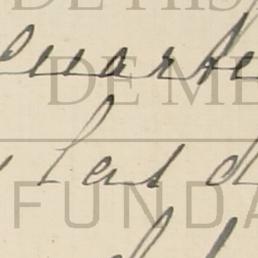 DE HIS
cuarte
DE ME
las d
FUNDA